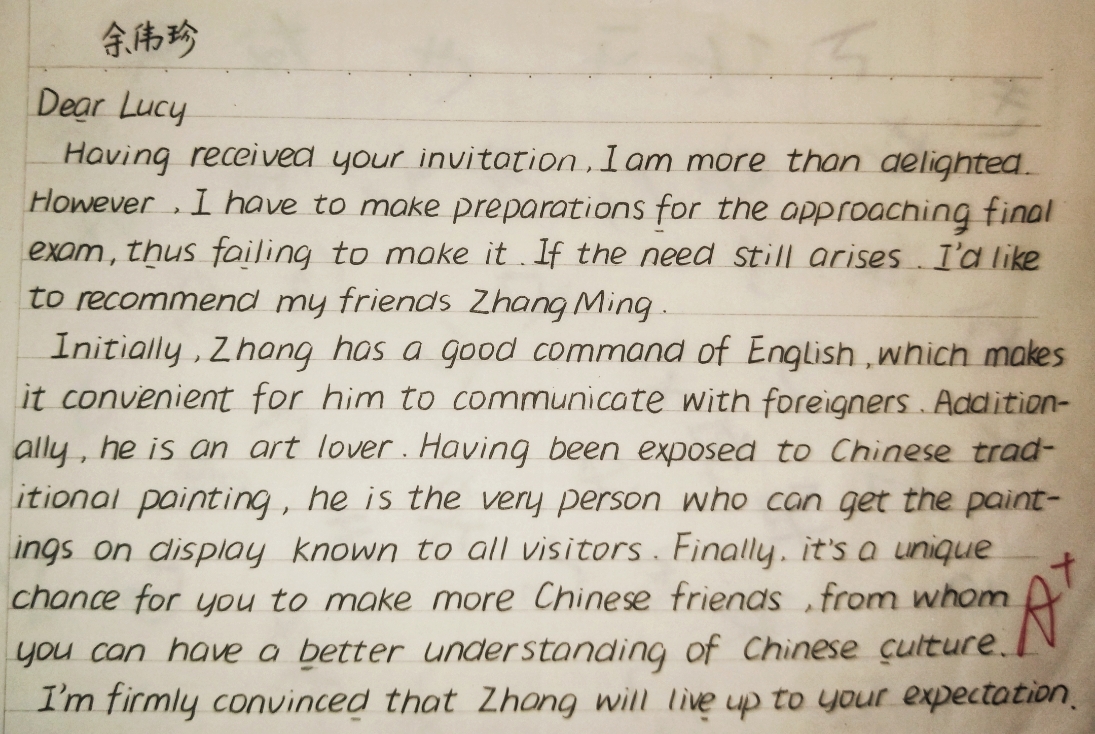 余伟珍
Dear Lucy
Having received your invitation, I am more than delighted.
However, I have to make preparations for the approaching final
exam, thus failing to make it. If the need still arises. I'd like
to recommend my friends Zhang Ming.
Initially, Zhang has a good command of English, which makes
it convenient for him to communicate with foreigners. Addition-
ally, he is an art lover. Having been exposed to Chinese trad-
itional painting, he is the very person who can get the paint-
ings on display known to all visitors. Finally. it's a unique
chance for you to make more Chinese friends, from whom
you can have a better understanding of Chinese culture.
A+
I'm firmly convinced that Zhang will live up to your expectation.